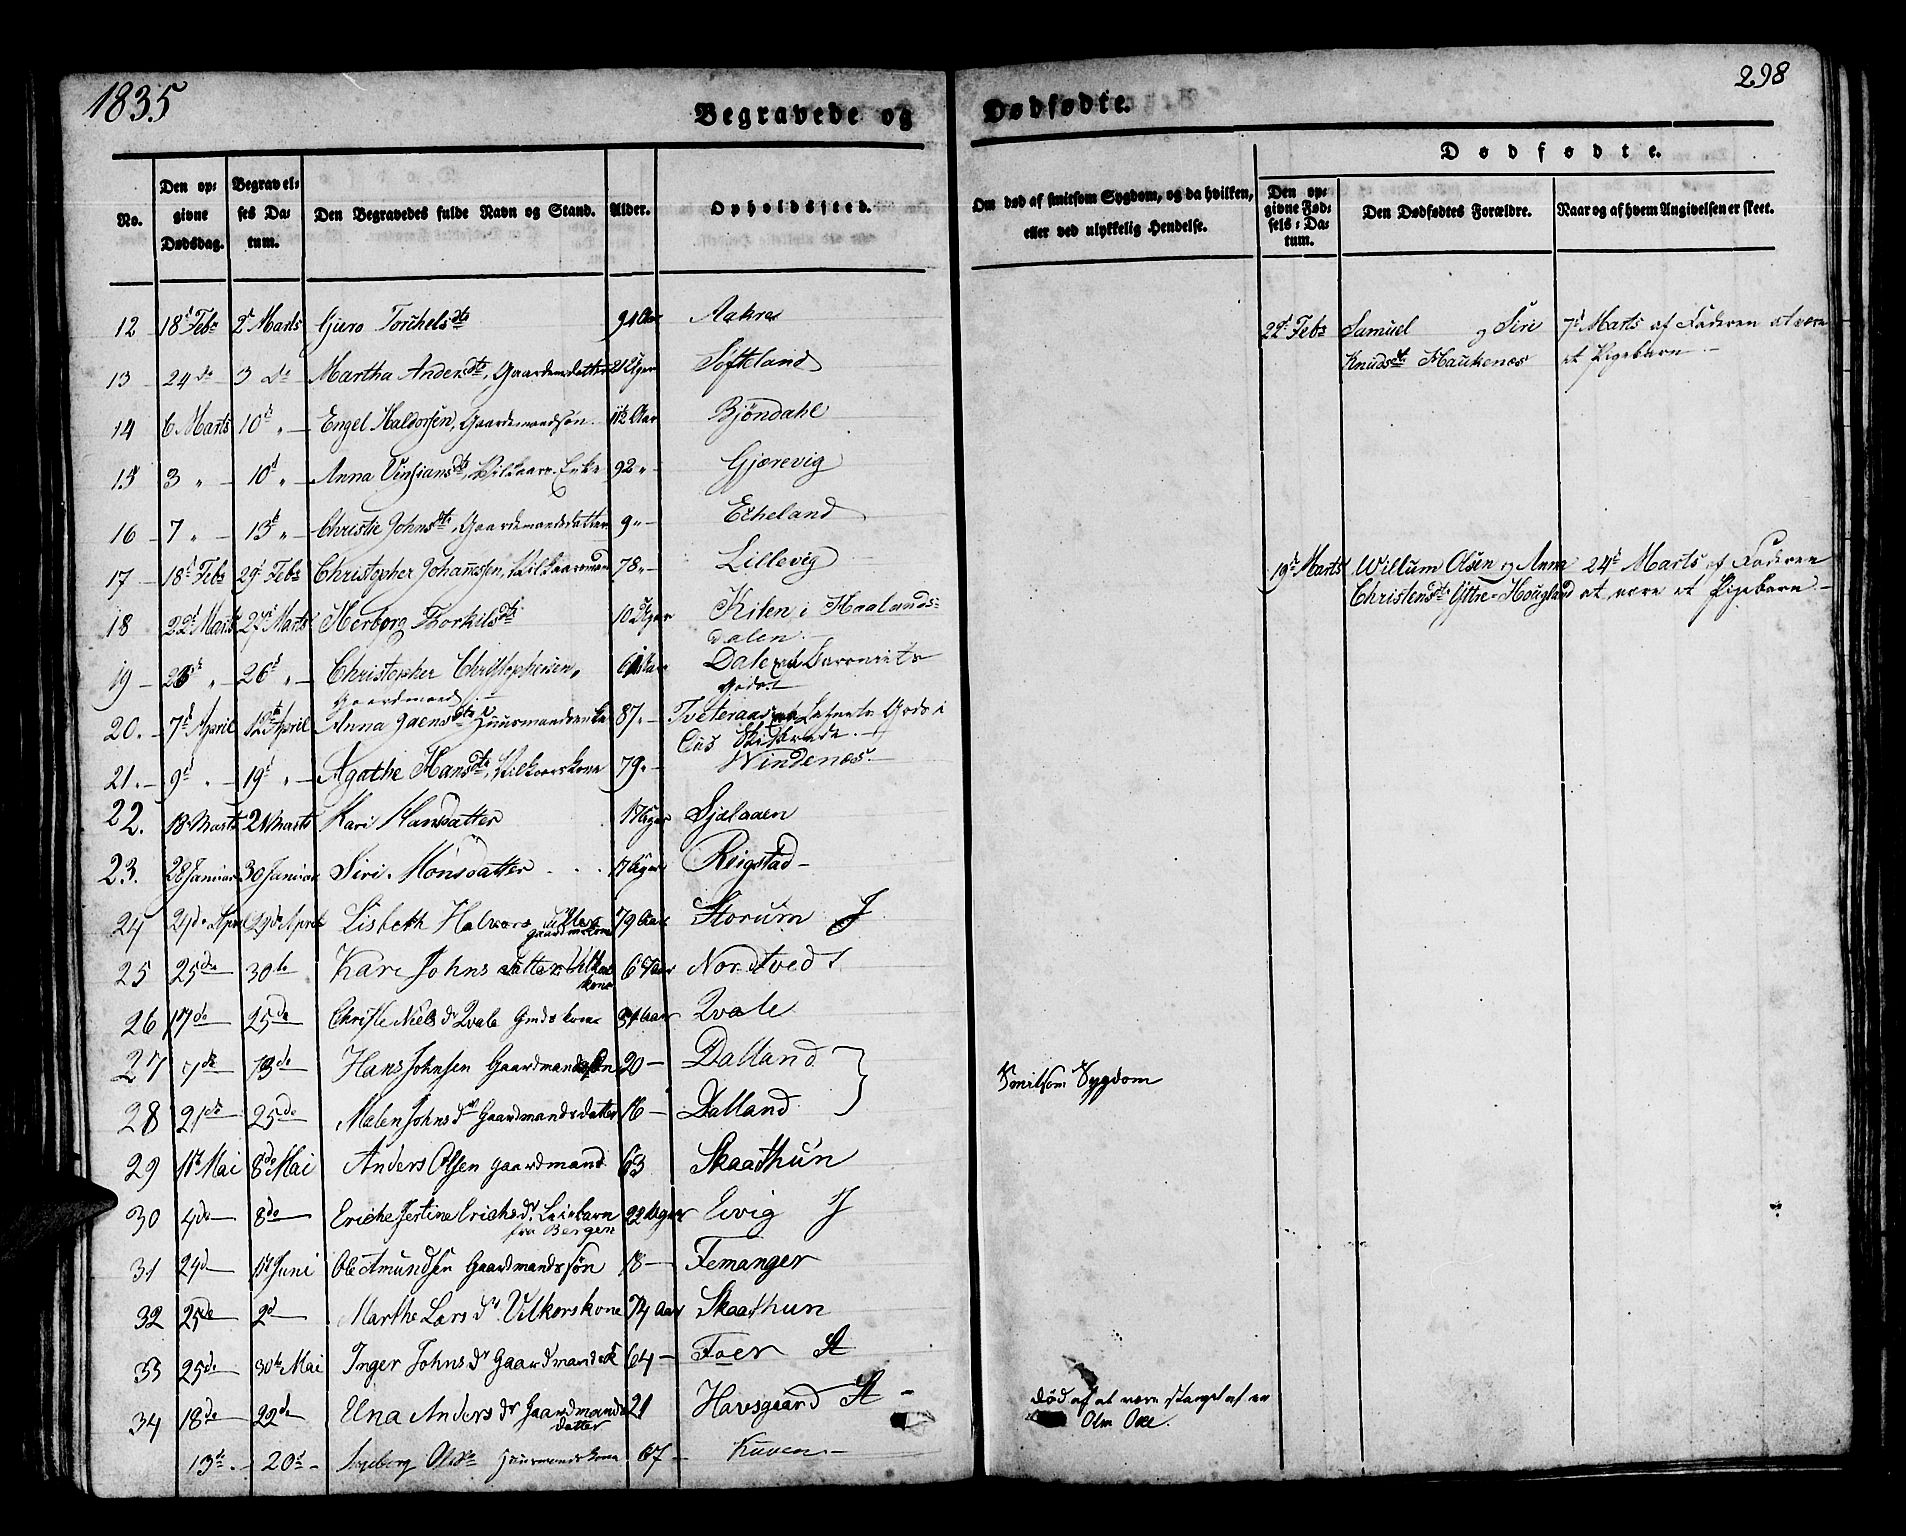 1835
298
Begravede og Dødfødte.
No.
Den opgivne Dødsdag.
Begravelses Datum.
Den Begravedes fulde Navn og Stand.
Alder.
Opholdssted.
Om død af smitsom Sygdom, og da hvilken, eller ved ulykkelig Hendelse.
Dødfødte.
Den opgivne Fødsels-Datum.
Den Dødfødtes Forældre.
Naar og af hvem Angivelsen er skeet.
12 18d Febr 2d Marts Gjuro Torchelsdtr 91 Aar Aakre
22d Febr Samuel og Siri 7d Marts af Faderen at være
Knudsdtr Haukenæs et Pigebarn
13 24 do 3 do Martha Andersdtr, Gaardmandsdatter Uger Søfteland
14 6 Marts 10d " Engel Haldorsen, Gaardmandssøn 11½ Aar Bjöndahl
15 3 " 10d " Anna Dtr, Vilkaars Enke 92 " Gjærevig
16 7 " 13d " Christie Johnsdtr, Gaardmandsdatter 9 " Echeland
17 18d Febr 29d Febr Christopher Johannssen, Vilkaarsmand 78 " Lillevig
19d Marts Willum Olsen og Anna 24d Marts af Faderen
Christensdtr Yttre-Hougland at være et Pigebarn
18 22d Marts 27d Marts Herborg Thorkilsdtr 10 Uger Kilen i Haalandsdalen
19 26 " 26d " Christopher Christophersen, Gaardmand 61 Aar Dale Baroniets Gods
20. 7d April 12d April Anna Jaensdtr Huusmandsenke 87 " Tveteraas Gods i Ous Skibrede
21. 9d " 19d " Agathe Hansdtr, Vilkaarskone 79 " Windenæs
22. 18 Marts 21 Marts Kari Hansdatter 17 Uger Sjelaaen
23. 28 Januar 30 Januar Siri Monsdatter 17 Uger Reigstad
24 24de Apr 29de April Lisbeth Halvorsdatter Gaardmkone 79 Aar Storum J
25 25de 30te Kari Johnsdatter Vilkaarskone 67 Aar Nordtvedt
26 17de 25de Christe Niels dr Qvale Gmdskone 31 Aar Qvale
27 7de 13de Hans Johnsen Gaardmandssøn 20 Dalland
Smitsom Sygdom
28 21de 25de Malen Johns dr Gaardmandsdatter 16 Dalland
29 1te Mai 8de Mai Anders Olsen gaardmand 63 Skaathun
30 4de 8de Eriche Jertine Erichs dr. Leiebarn fra Bergen 22 Uger Evig J
31 24d 1te Juni Ole Amundsen Gaardmandssøn 18 Femanger
32 25de 2d Marthe Lars dr Vilkorskone 74 Aar Skaathun
33 25de 30te Mai Inger Johns dr Gaardmandsk 64 Foer St
34 18de 22de Elna Anders dr Gaardmandsdatter 21 Havsgaard St
død af at være stanget af en Olm Oxe.
13de 20d Ingeborg Olsdtr Huusmandskone 67 Kuven